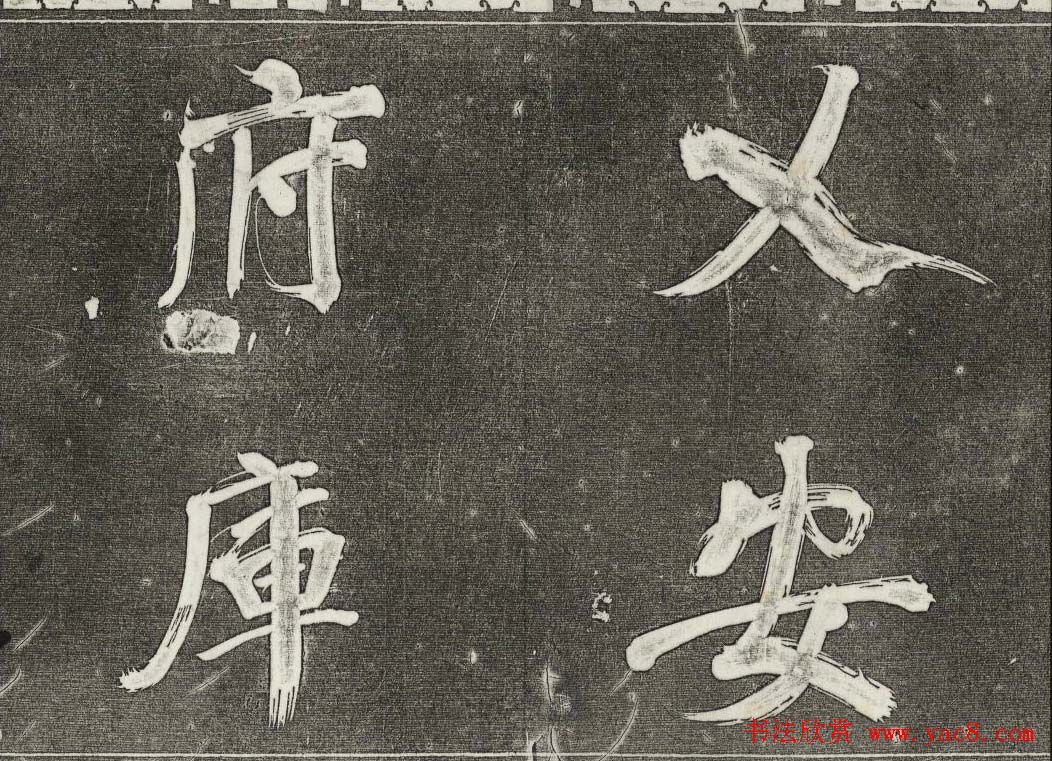 乂安
府庫
书法欣赏 www.yac8.com